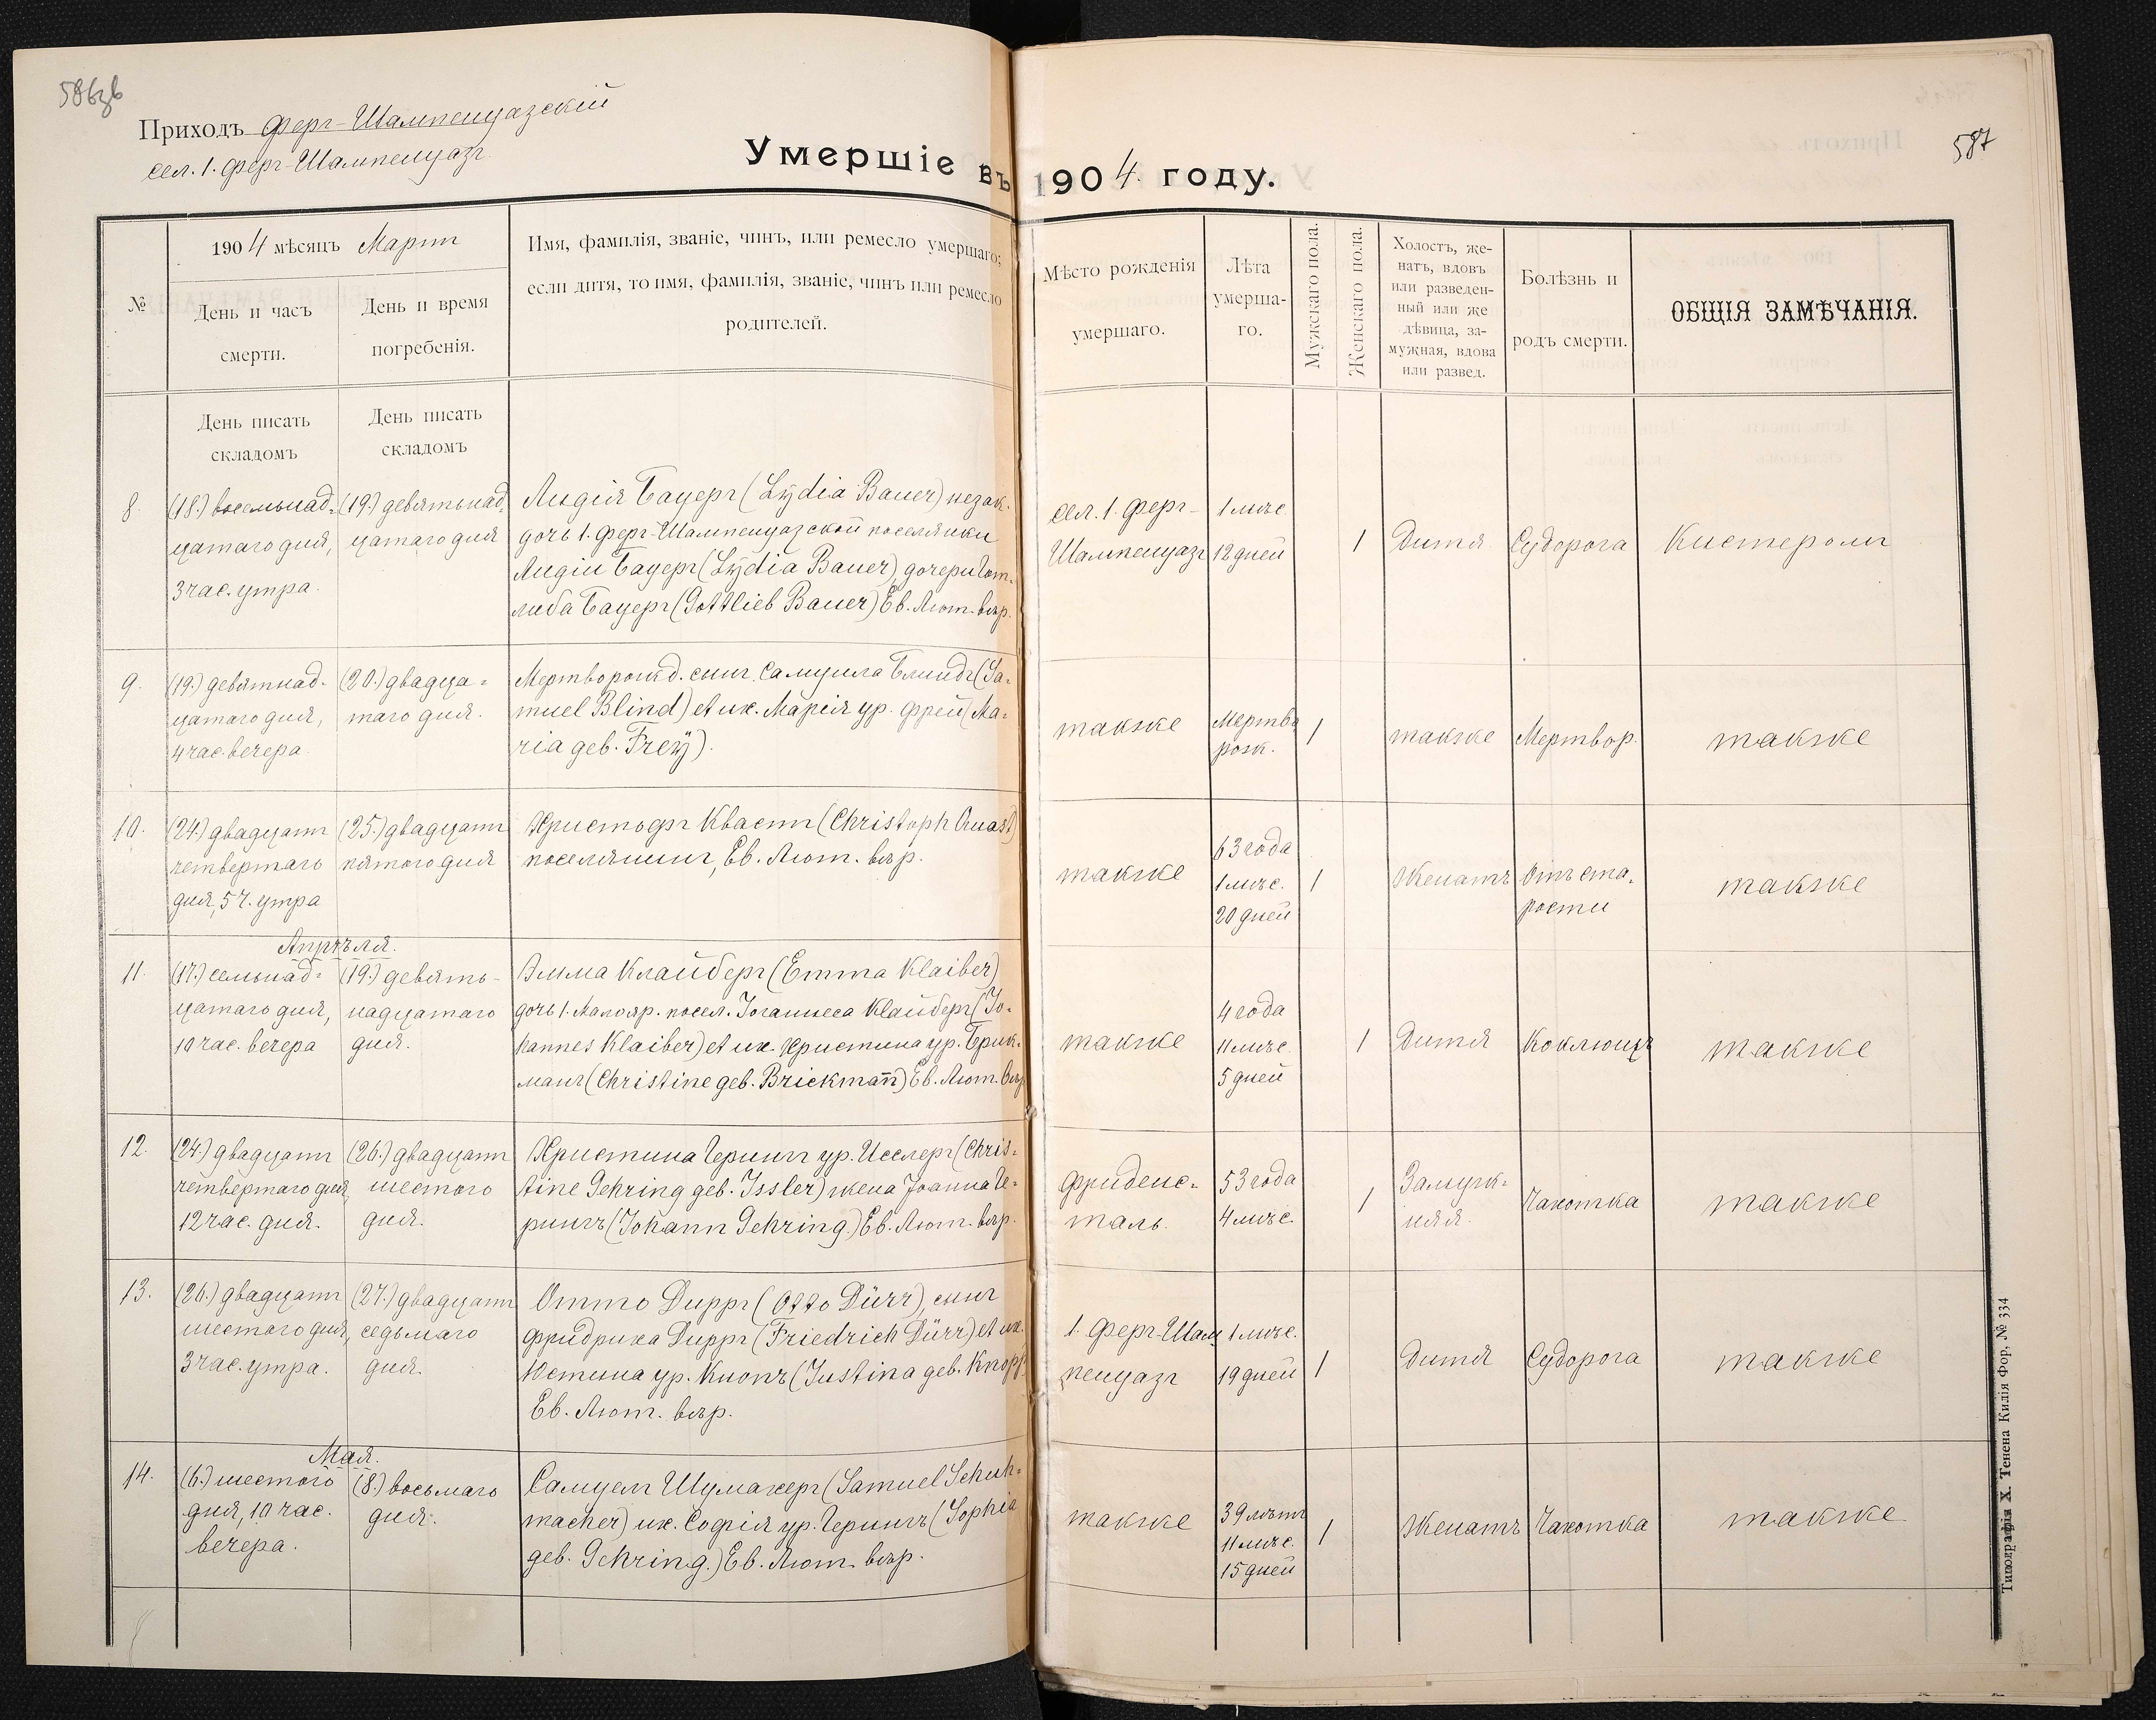 586зв
Приходъ Ферг-Шампенуазскій
сел. 1. Ферг-Шампенуазъ
Умершіе въ 1904. году.
587
№
1904 мѣсяцъ Мартъ
День и часъ
смерти.
День и время
погребенія.
Имя, фамилія, званіе, чинъ, или ремесло умершаго;
если дитя, то имя, фамилія, званіе, чинъ или ремесло
родителей.
Мѣсто рожденія
умершаго.
Лѣта
умерша-
го.
Мужскаго пола.
Женскаго пола.
Холостъ, же-
натъ, вдовъ
или разведен-
ный или же
дѣвица, за-
мужная, вдова
или развед.
Болѣзнь и
родъ смерти.
ОБЩІЯ ЗАМѢЧАНІЯ.
День писать
складомъ
День писать
складомъ
8
(18.) восемьнад-
цатаго дня,
3 час. утра.
(19.) девятьнад-
цатаго дня
Лидія Бауеръ (Lydia Bauer) незак.
дочь 1. Ферг-Шампенуазской поселянки
Лидіи Бауеръ (Lydia Bauer), дочери Гот-
либа Бауеръ (Gottlieb Bauer) Ев. Лют. вѣр.
сел. 1. Ферг-
Шампенуазъ
1 мѣс.
12 дней
1
Дитя
Судорога
Кистеромъ
9.
(19.) девятнад-
цатаго дня,
4 час. вечера.
(20.) двадца-
таго дня.
Мертворожд. сынъ Самуила Блиндъ (Sa-
muel Blind) et ux. Марія ур. Фрей (Ma-
ria geb. Frey).
также
Мертво
рож.
1
также
Мертвор.
также
10.
(24.) двадцать
четвертаго
дня, 5 ч. утра
(25.) двадцать
пятого дня
Христофъ Квастъ (Christoph Quast)
поселянинъ, Ев. Лют. вѣр.
также
63 года
1 мѣс.
20 дней
1
Женатъ
Отъ ста-
рости
также
Апрѣля.
11.
(17.) семьнад-
цатаго дня,
10 час. вечера
(19.) девять-
надцатаго
дня.
Эмма Клайберъ (Emma Klaiber)
дочь 1. Малояр. посел. Іоганнеса Клайберъ (Jo-
hannes Klaiber) et ux. Христина ур. Брик-
манъ (Christine geb. Brickman̄) Ев. Лют. вѣр
также
4 года
11 мѣс.
5 дней
1
Дитя
Коклюшъ
также
12.
(24.) двадцать
четвертаго дня,
12 час. дня.
(26.) двадцать
шестого
дня.
Христина Герингъ ур. Исслеръ (Chris-
tine Gehring geb. Issler) жена Іоанна Ге-
рингъ (Johann Gehring.) Ев. Лют. вѣр.
Фриденс-
таль.
53 года
4 мѣс.
1
Замуж-
няя.
Чахотка
также
13.
(26.) двадцать
шестого дня,
3 час. утра.
(27.) двадцать
седьмаго
дня.
Отто Дирръ (Otto Dürr), сынъ
Фридриха Дирръ (Friedrich Dürr) et ux.
Юстина ур. Кнопъ (Justina geb. Knopp)
Ев. Лют. вѣр.
1. Ферг-Шам-
пенуазъ
1 мѣс.
19 дней
1
Дитя
Судорога
также
Мая.
14.
(6.) шестого
дня, 10 час.
вечера.
(8.) восьмаго
дня.
Самуелъ Шумахеръ (Samuel Schuh-
macher) ux. Софія ур. Герингъ (Sophia
geb. Gehring.) Ев. Лют. вѣр.
также
39 лѣтъ
11 мѣс.
15 дней
1
Женатъ
Чахотка
также
Типографія Х. Тенена Килія Фор. № 334